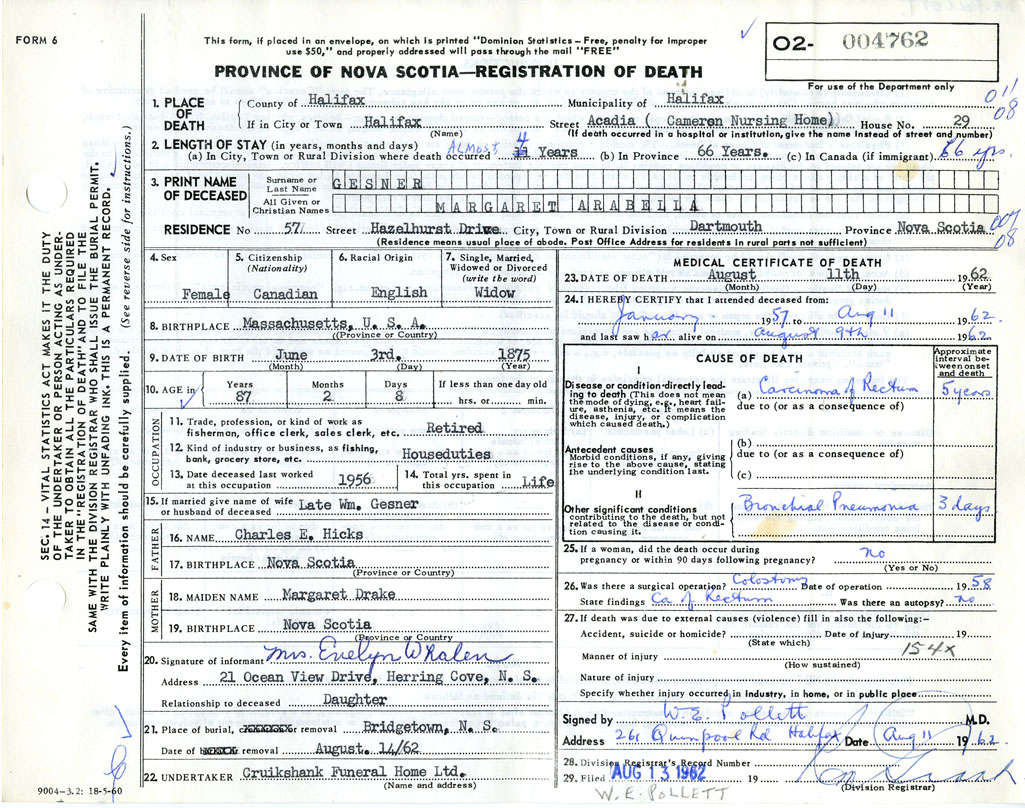 FORM 6
This form, if placed in an envelope, on which is printed "Dominion Statistics – Free, penalty for improper
use $50," and properly addressed will pass through the mail "FREE"
PROVINCE OF NOVA SCOTIA—REGISTRATION OF DEATH
02- 004762
For use of the Department only
011
08
1. PLACE OF DEATH
County of Halifax Municipality of Halifax
If in City or Town Halifax Street Acadia ( Cameron Nursing Home) House No. 29
(Name) (If death occurred in a hospital or institution, give the name instead of street and number)
2. LENGTH OF STAY (in years, months and days)
(a) In City, Town or Rural Division where death occurred ALMOST 4 Years (b) In Province 66 Years. (c) In Canada (if immigrant) 66 yrs.
3. PRINT NAME OF DECEASED
Surname or Last Name GESNER
All Given or Christian Names MARGARET ARABELLA
RESIDENCE No 57 Street Hazelhurst Drive City, Town or Rural Division Dartmouth Province Nova Scotia
007
08
(Residence means usual place of abode. Post Office Address for residents in rural parts not sufficient)
4. Sex
Female
5. Citizenship
(Nationality)
Canadian
6. Racial Origin
English
7. Single, Married,
Widowed or Divorced
(write the word)
Widow
8. BIRTHPLACE Massachusetts, U. S. A.
((Province or Country)
9. DATE OF BIRTH June 3rd. 1875
(Month) (Day) (Year)
10. AGE in
Years Months Days If less than one day old
87 2 8 hrs. or min.
OCCUPATION
11. Trade, profession, or kind of work as
fisherman, office clerk, sales clerk, etc. Retired
12. Kind of industry or business, as fishing,
bank, grocery store, etc. Houseduties
13. Date deceased last worked
at this occupation 1956
14. Total yrs. spent in
this occupation Life
15. If married give name of wife
or husband of deceased Late Wm. Gesner
FATHER
16. NAME Charles E. Hicks
17. BIRTHPLACE Nova Scotia
(Province or Country)
MOTHER
18. MAIDEN NAME Margaret Drake
19. BIRTHPLACE Nova Scotia
(Province or Country
20. Signature of informant Mrs. Evelyn Whalen
Address 21 Ocean View Drive, Herring Cove, N. S.
Relationship to deceased Daughter
21. Place of burial, or removal Bridgetown, N. S.
Date of removal August. 14/62
22. UNDERTAKER Cruikshank Funeral Home Ltd.
(Name and address)
9004–3.2: 18-5-60
MEDICAL CERTIFICATE OF DEATH
23. DATE OF DEATH August 11th 1962
(Month) (Day) (Year)
24. I HEREBY CERTIFY that I attended deceased from:
January 1957 to Aug 11 1962.
and last saw her alive on August 9th 1962
CAUSE OF DEATH
Approximate
interval be-
tween onset
and death
I
Disease or condition directly lead-
ing to death (This does not mean
the mode of dying, e.g., heart fail-
ure, asthenia, etc. It means the
disease, injury, or complication
which caused death.)
(a) Carcinoma of Rectum 5 years
due to (or as a consequence of)
Antecedent causes
Morbid conditions, if any, giving
rise to the above cause, stating
the underlying condition last.
(b)
due to (or as a consequence of)
(c)
II
Other significant conditions
contributing to the death, but not
related to the disease or condi-
tion causing it.
Bronchial Pneumonia 3 days
25. If a woman, did the death occur during
pregnancy or within 90 days following pregnancy? no
(Yes or No)
26. Was there a surgical operation? Colostomy Date of operation 1958
State findings Ca of Rectum Was there an autopsy? no
27. If death was due to external causes (violence) fill in also the following:–
Accident, suicide or homicide? Date of injury 19
(State which)
154X
Manner of injury
(How sustained)
Nature of injury
Specify whether injury occurred in industry, in home, or in public place
Signed by W. E. Pollett M.D.
Address 261 Quinpool Rd Halifax Date Aug 11 1962.
28. Division Registrar's Record Number
29. Filed AUG 13 1962 19
(Division Registrar)
W. E. POLLETT
SEC. 14 – VITAL STATISTICS ACT MAKES IT THE DUTY
OF THE UNDERTAKER OR PERSON ACTING AS UNDER-
TAKER TO OBTAIN ALL THE PARTICULARS REQUIRED
IN THE "REGISTRATION OF DEATH" AND TO FILE THE
SAME WITH THE DIVISION REGISTRAR WHO SHALL ISSUE THE BURIAL PERMIT.
WRITE PLAINLY WITH UNFADING INK. THIS IS A PERMANENT RECORD.
Every item of information should be carefully supplied. (See reverse side for instructions.)